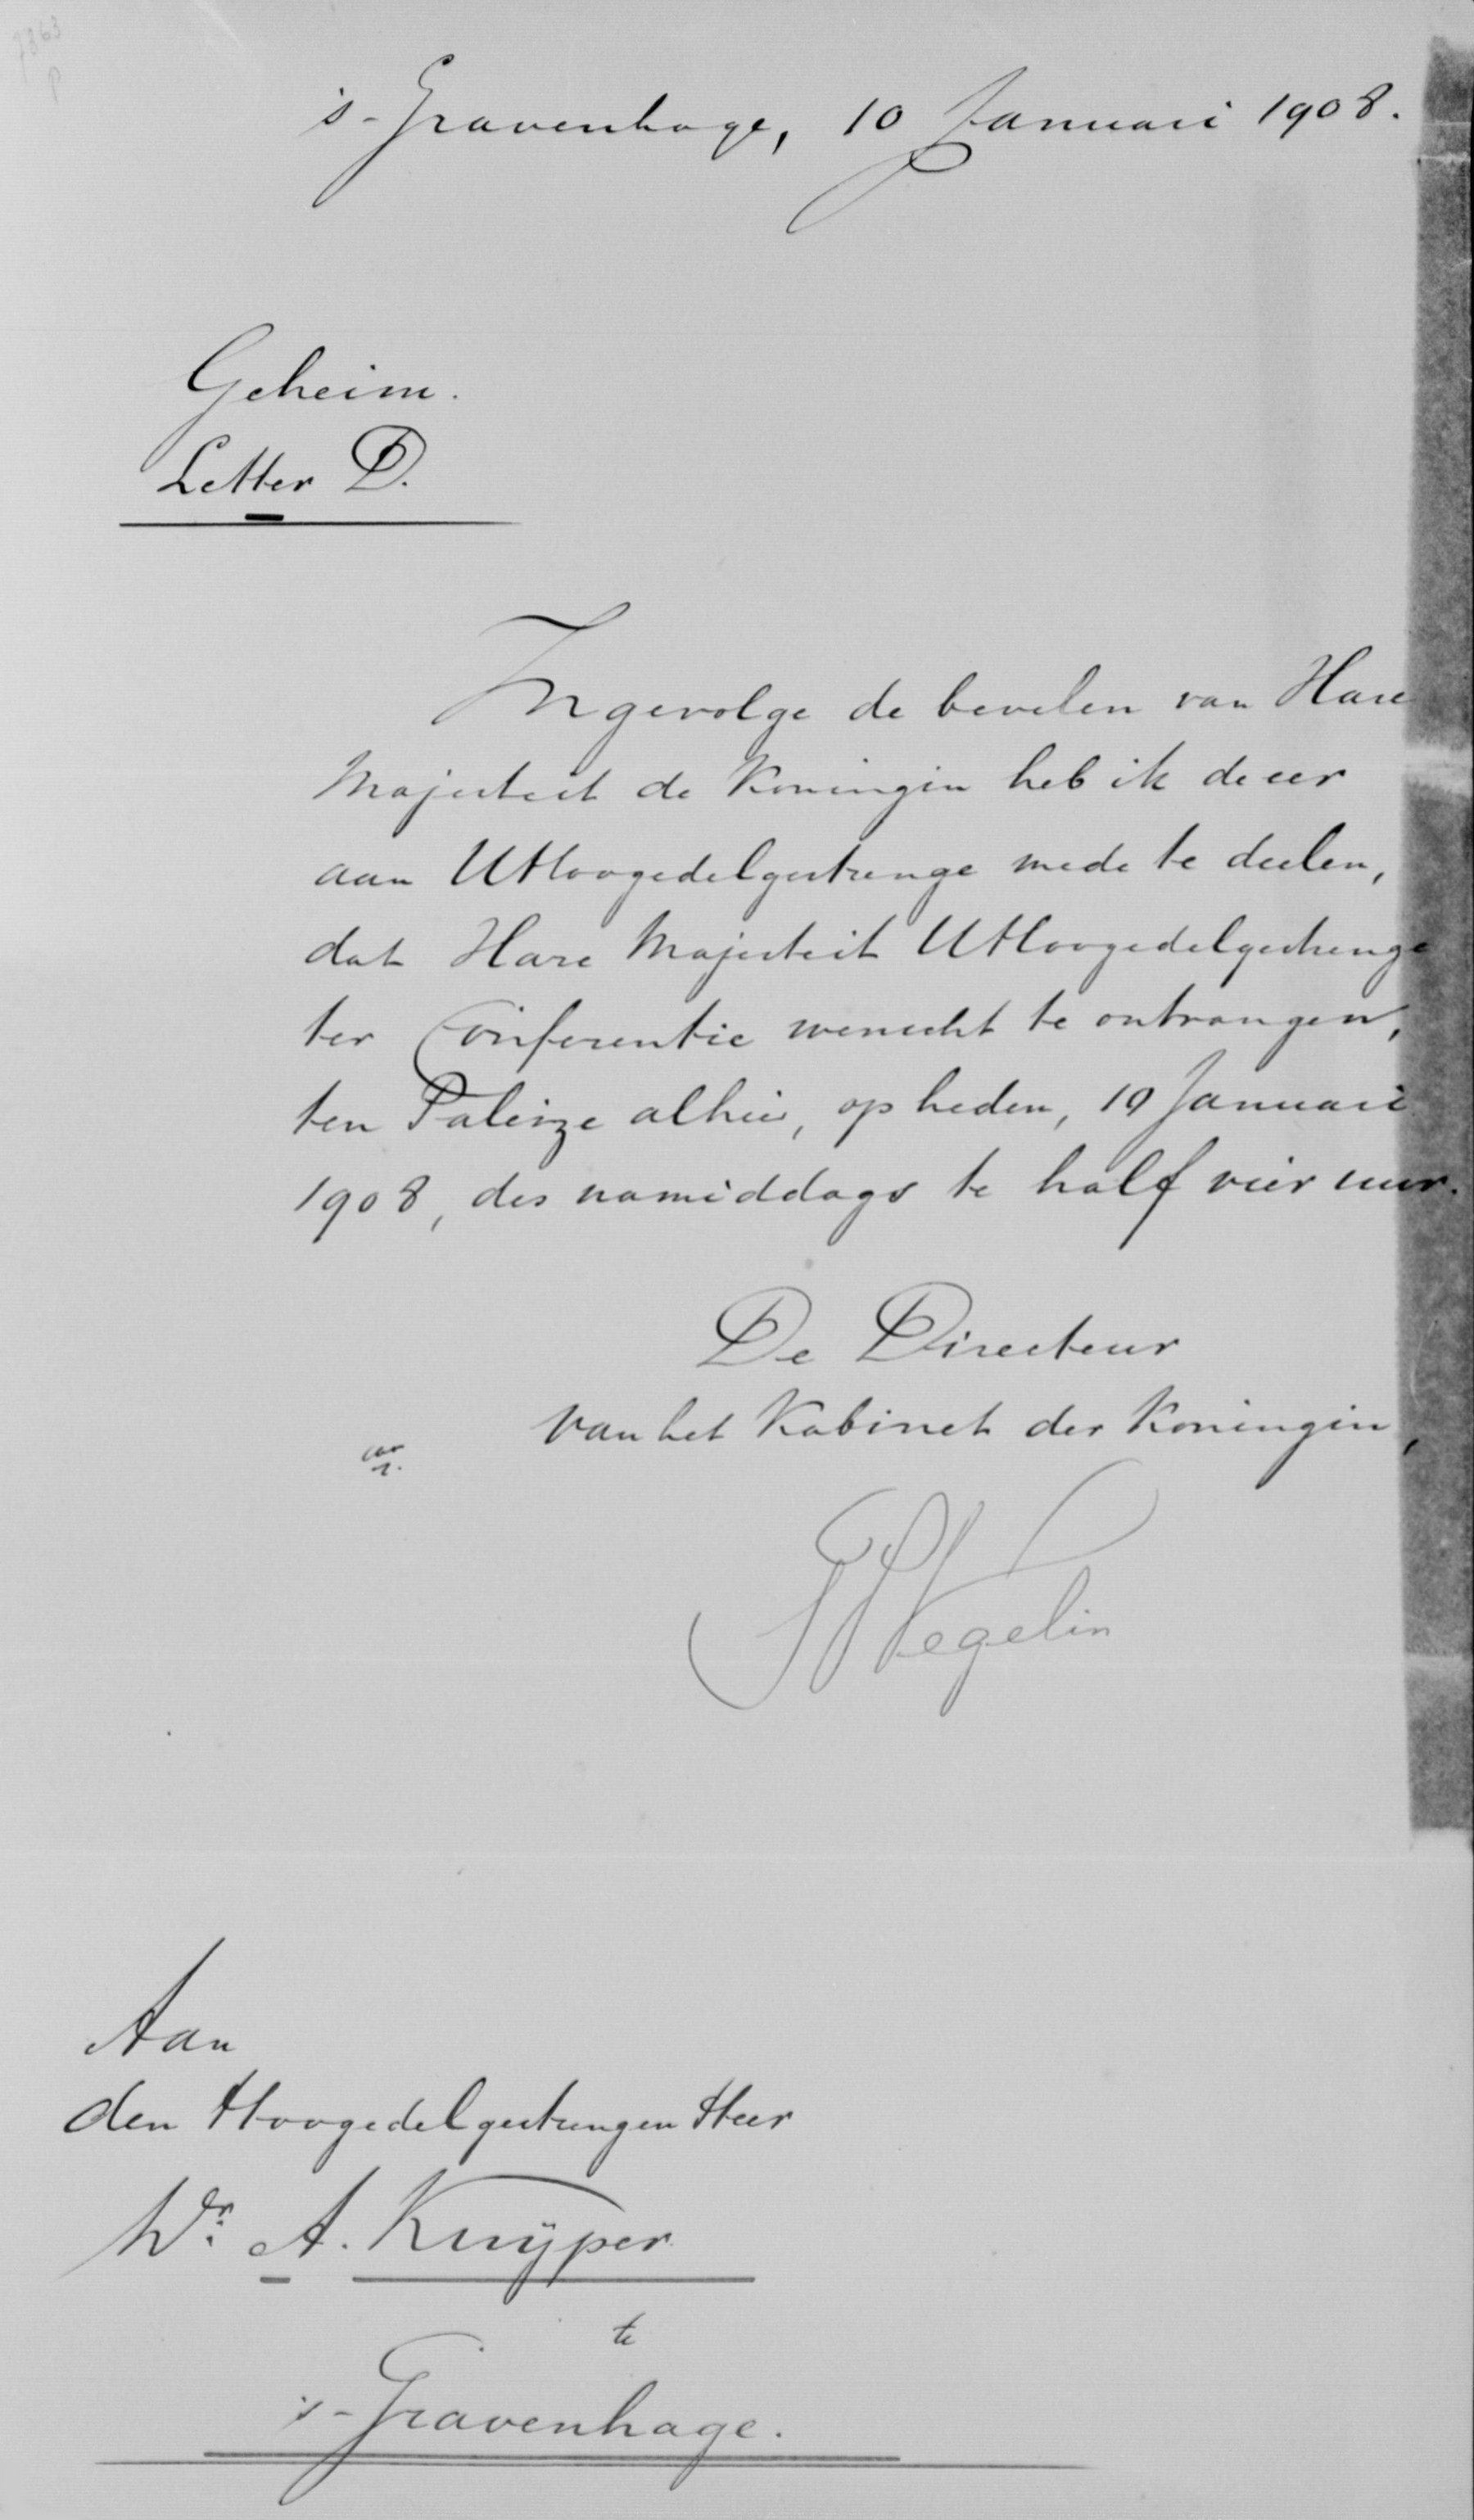 7363
P
's-Gravenhage, 10 Januari 1908.
Geheim.
Letter D.
Ingevolge de bevelen van Hare
Majesteit de Koningin heb ik de eer
aan UHoogedelgestrenge mede te deelen,
dat Hare Majesteit UHoogedelgestrenge
ter Conferentie wenscht te ontvangen,
ten Paleize alhier, op heden, 10 Januari
1908, des namiddags te half vier uur.
De Directeur
van het Kabinet der Koningin,
Vegelin
Aan
den Hoogedelgestrengen Heer
Dr. A. Kuÿper
te
's-Gravenhage.